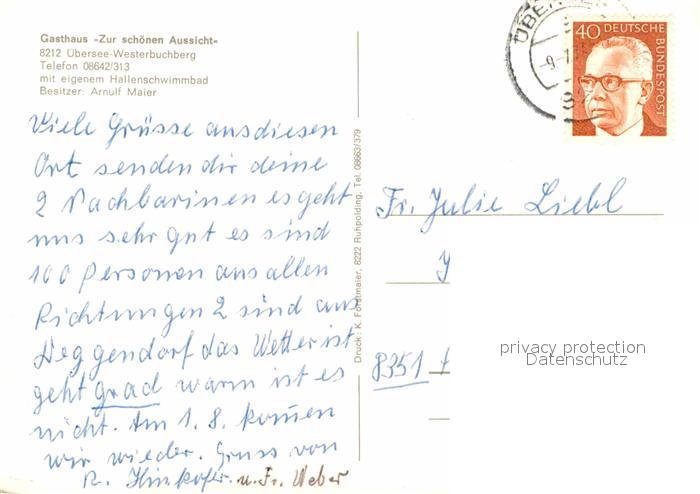 Gasthaus »Zur schönen Aussicht«
8212 Übersee-Westerbuchberg
Telefon 08642/313
mit eigenem Hallenschwimmbad
Besitzer: Arnulf Maier
Viele Grüsse aus diesen
Ort senden dir deine
2 Nachbarinen es geht
uns sehr gut es sind
100 Personen aus allen
Richtungen 2 sind aus
Deggendorf das Wetter ist
geht grad warm ist es
nicht. Am 1. 8. kom̄en
wir wieder. Gruss von
R. Hinkofer u. Fr. Weber
Druck: K. Forstmaier, 8222 Ruhpolding, Tel. 08663/379
40 DEUTSCHE BUNDESPOST
Fr. Julie Liebl
8351
privacy protection
Datenschutz